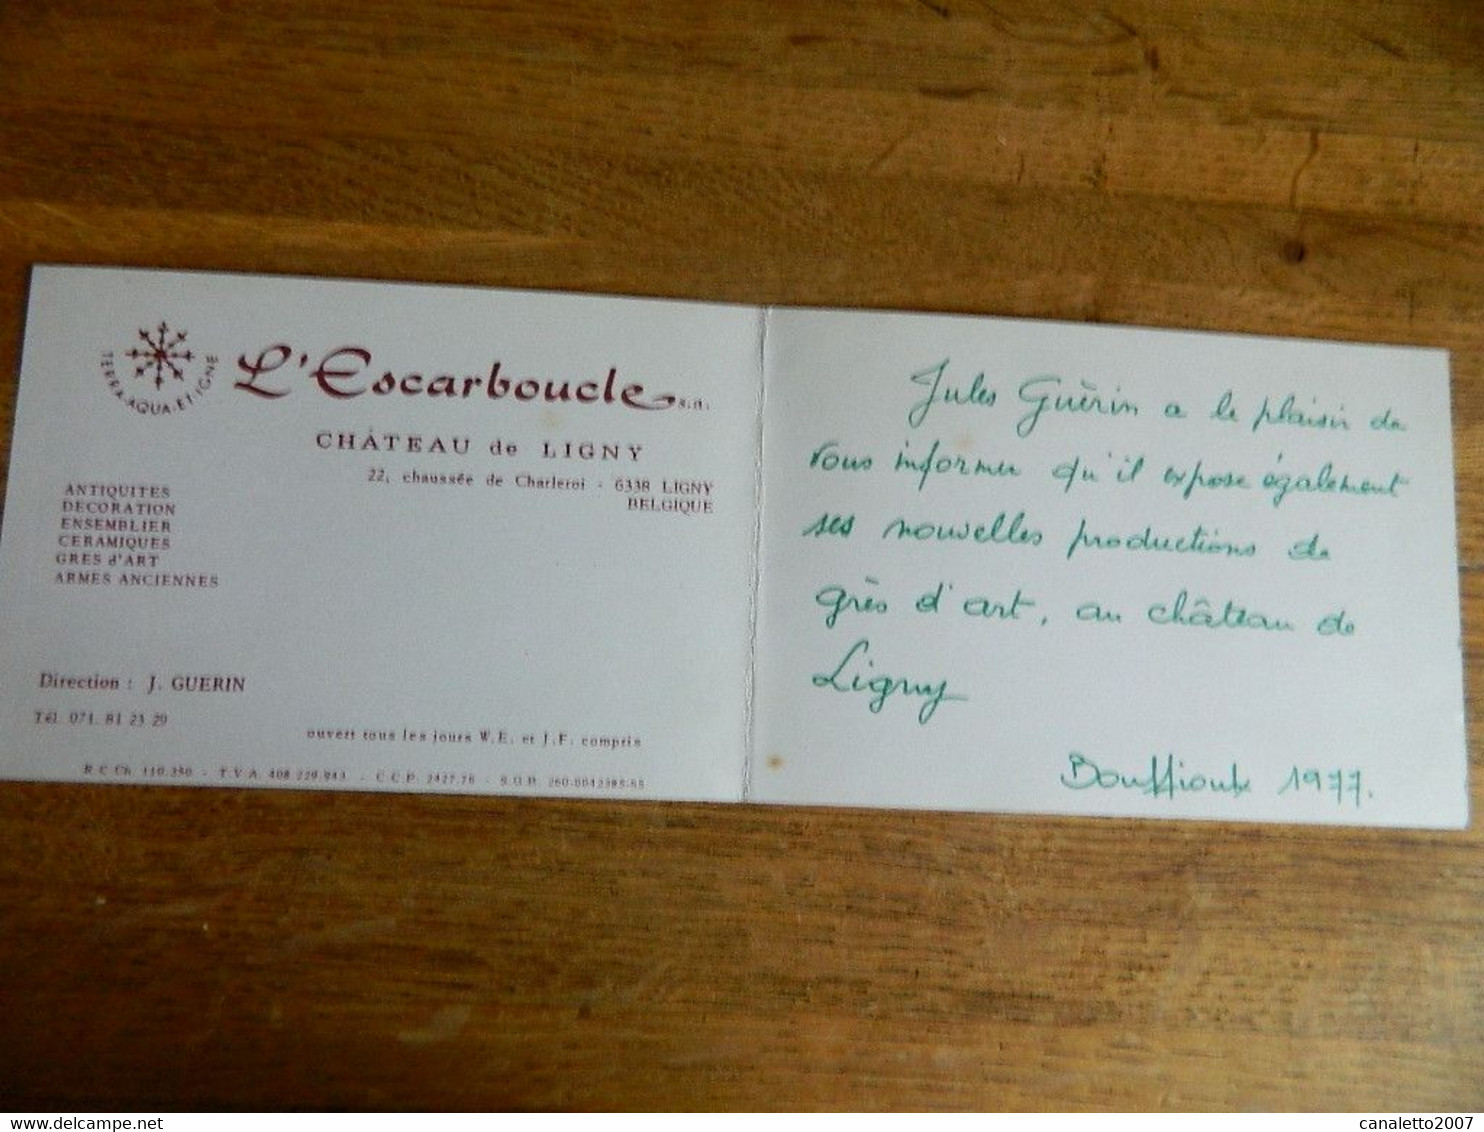 TERRA-AQUA-ET-IGNE
L'Escarboucle s.a.
CHÂTEAU de LIGNY
22, chaussée de Charleroi - 6338 LIGNY
BELGIQUE
ANTIQUITES
DECORATION
ENSEMBLIER
CERAMIQUES
GRES d'ART
ARMES ANCIENNES
Direction : J. GUERIN
Tél. 071. 81 23 29
ouvert tous les jours W.E. et J.F. compris
R.C. Ch. 110.350 - T.V.A. - C.C.P. - S.G.B.
Jules Guérin a le plaisir de
vous informer qu'il expose également
ses nouvelles productions de
grès d'art, au château de
Ligny
Bouffioulx 1977.
delcampe.net
canaletto2007